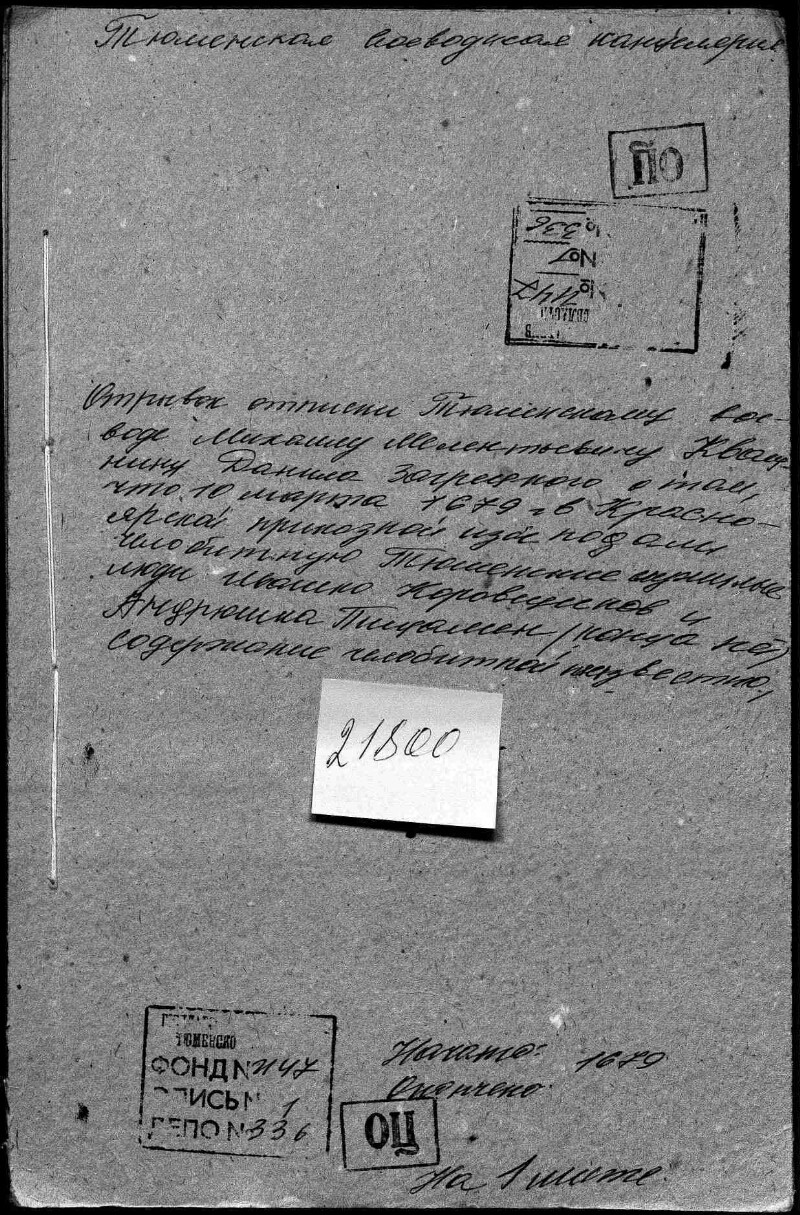 Тюменская воеводская канцелярия
ОЦ
336
№ 1
№ И47
Отрывок отписки Тюменскому вое-
воде Михаилу Мелентьевичу Кваш-
нину Данила Загряцкого о том,
что 10 марта 1679 г. в Красно-
ярской приказной избе подали
челобитную Тюменские служилые
люди Ивашко Коровщиков и
Андрюшка /конца нет,
содержание челобитной неизвестно/
21800
ТЮМЕНСКО
ФОНД № И47
ОПИСЬ № 1
ДЕЛО № 336
Начато: 1679
Окончено:
ОЦ
На 1 листе.